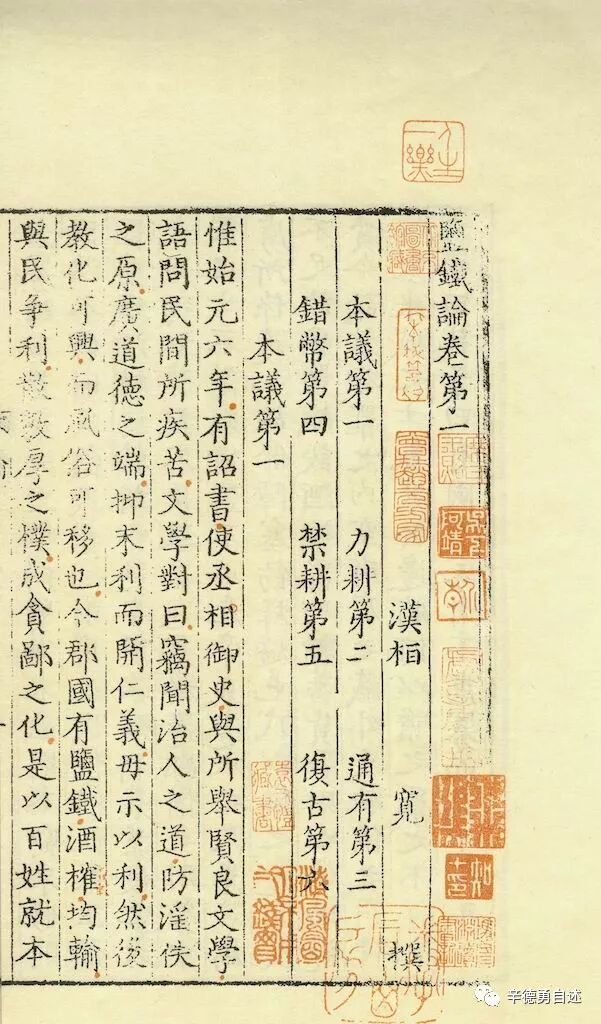 人生一樂
鹽鐵論卷第一
漢桓 寬 撰
本議第一 力耕第二 通有第三
錯幣第四 禁耕第五 復古第六
本議第一
惟始元六年有詔書使丞相御史與所舉賢良文學
語問民間所疾苦文學對曰竊聞治人之道防淫佚
之原廣道德之端抑末利而開仁義毋示以利然後
教化可興而風俗可移也今郡國有鹽鐵酒榷均輸
與民爭利散敦厚之樸成貪鄙之化是以百姓就本
辛德勇自述